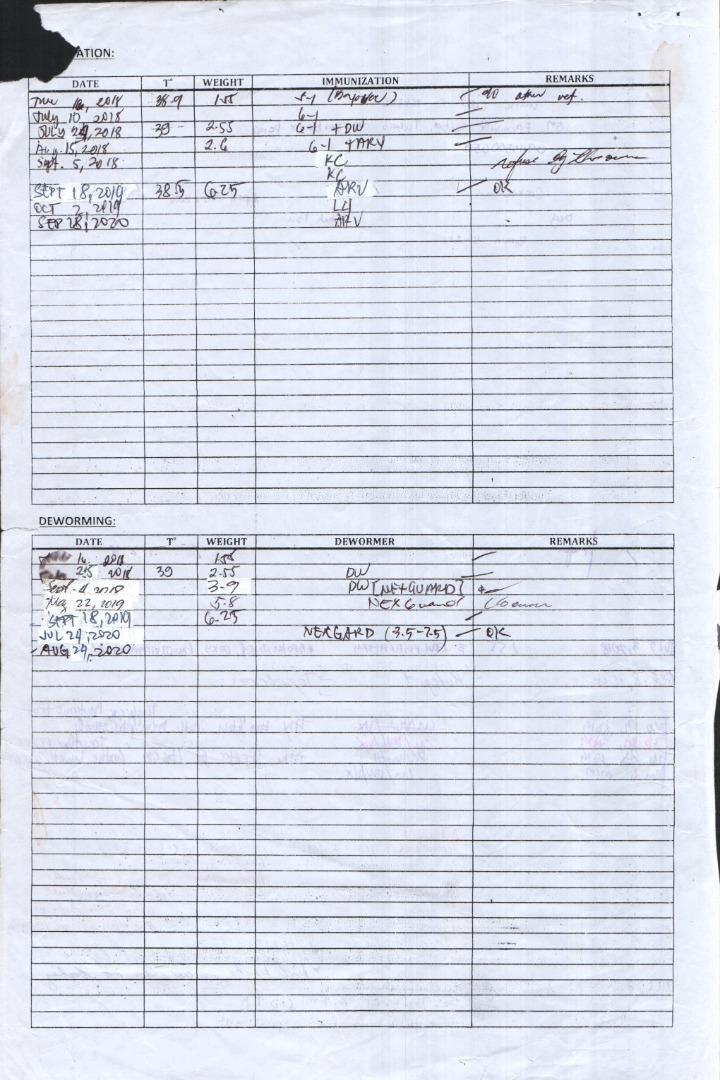 ATION:
DATE T° WEIGHT IMMUNIZATION REMARKS
16, 2018 38.9 1.55 5-1 other vet.
JULY 10, 2018 6-1
JULY 24, 2018 39 2.55 6-1 + DW
Aug. 15, 2018 2.6 6-1 + ARV
Sept. 5, 2018 KC refuse by
KC
SEPT 18, 2019 38.5 6.25 ARV OK
OCT 2, 2019 L4
SEP 28, 2020 ARV
DEWORMING:
DATE T° WEIGHT DEWORMER REMARKS
16 2018 1.55
25 2018 39 2.55 DW
Sept. 4 2018 3.9 DW [NEXGUARD]
22, 2019 5.8 NEXGuard
SEPT 18, 2019 6.25
JUL 24, 2020 NEXGARD (3.5-7.5) OK
AUG 24, 2020